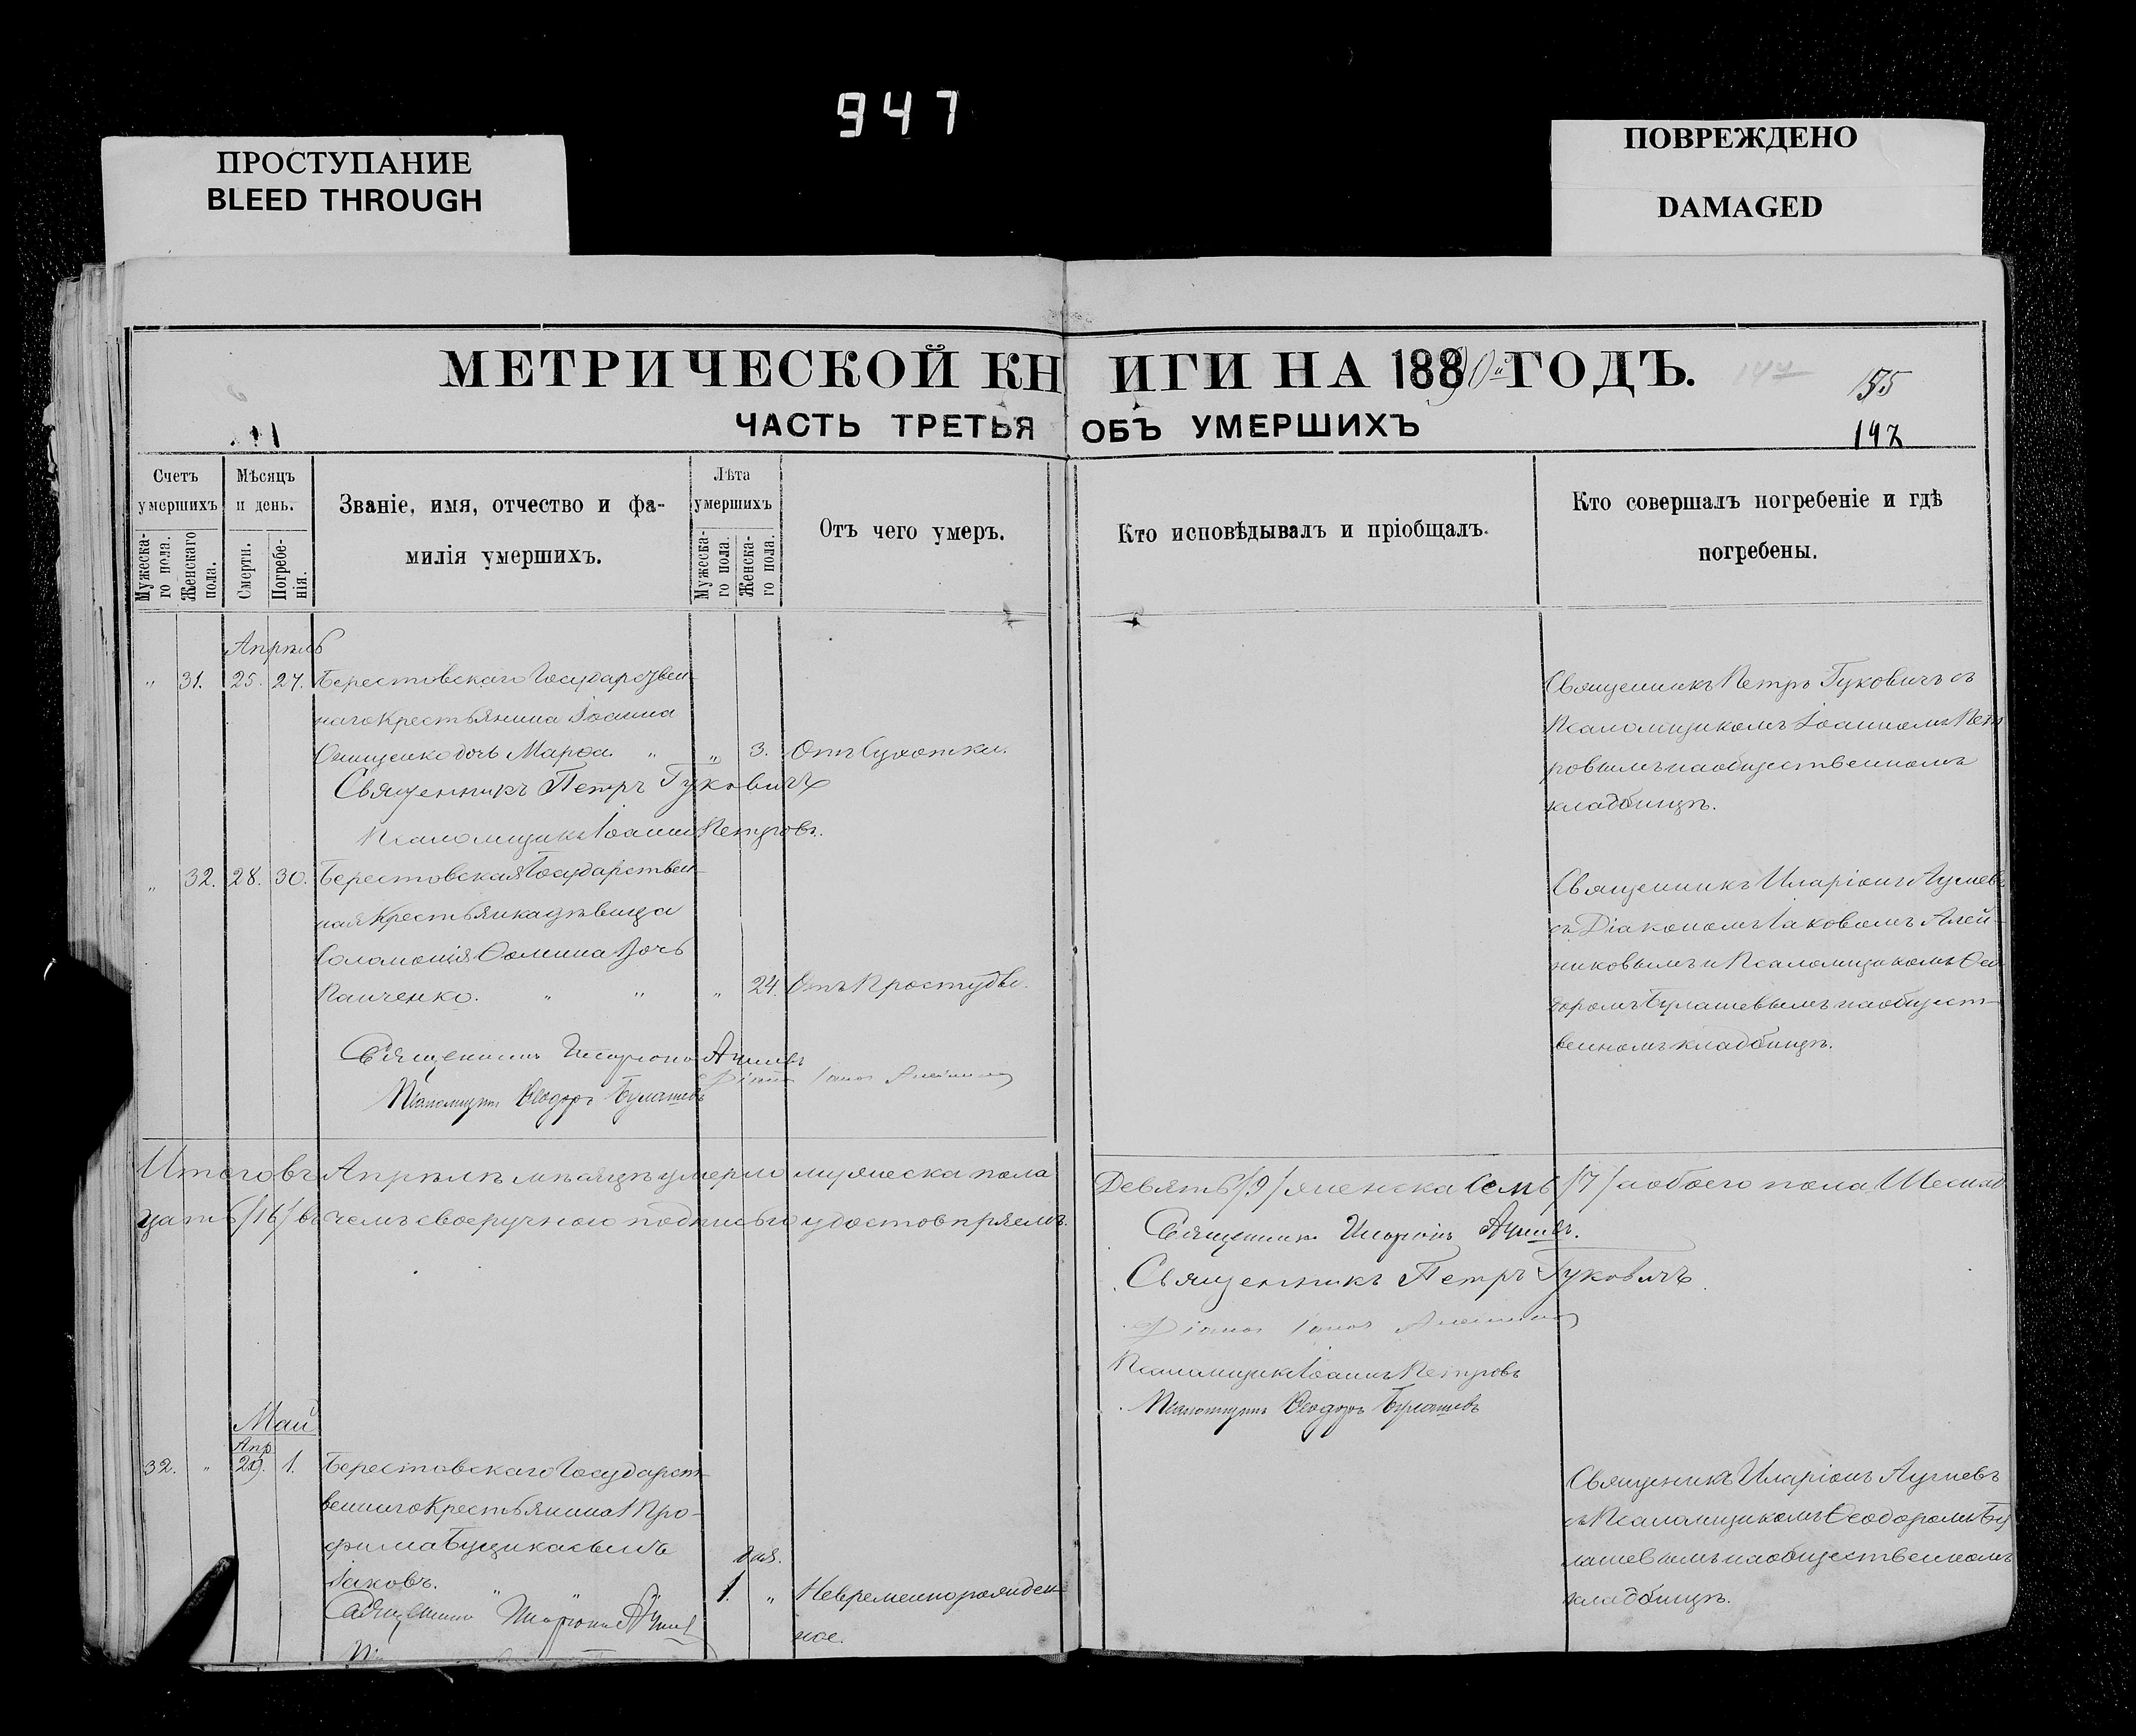 947
ПРОСТУПАНИЕ
BLEED THROUGH
ПОВРЕЖДЕНО
DAMAGED
МЕТРИЧЕСКОЙ КНИГИ НА 1890й ГОДЪ.
147
155
ЧАСТЬ ТРЕТЬЯ ОБЪ УМЕРШИХЪ
147
Счетъ умершихъ
Мужеска-го пола.
Женскаго пола.
Мѣсяцъ и день.
Смерти.
Погребе-нія.
Званіе, имя, отчество и фа-
милія умершихъ.
Лѣта умершихъ
Мужеска-го пола.
Женска-го пола.
Отъ чего умеръ.
Кто исповѣдывалъ и пріобщалъ.
Кто совершалъ погребеніе и гдѣ
погребены.
Апрѣль
" 31. 25. 27. Берестовскаго Государствен-
наго Крестьянина Іоанна
Онищенко дочь Марѳа. " " 3. Отъ Сухотки.
Священникъ Петръ Гуковичъ
Псаломщикъ Іоаннъ Петровъ.
Священникъ Петръ Гуковичъ съ
Псаломщикомъ Іоанномъ Пет
ровымъ на общественномъ
кладбищѣ.
" 32. 28. 30. Берестовская Государствен-
ная Крестьянка дѣвица
Соломонія Ѳомина дочь
Панченко. " " " 24. Отъ Простуды.
Священникъ Иларіонъ
Діаконъ
Псаломщикъ Ѳеодоръ Булашевъ
Священникъ Иларіонъ
съ Діакономъ Іаковомъ Алей-
никовымъ и Псаломщикомъ Ѳео
доромъ Булашевымъ на общест-
венномъ кладбищѣ.
Итого въ Апрѣлѣ мѣсяцѣ умерло мужеска пола Девять /9/ женска Семь /7/ а обоего пола Шестнад
цать /16/ въ чемъ своеручною подписью удостовѣряемъ.
Священникъ Иларіонъ
Священникъ Петръ Гуковичъ
Діаконъ
Псаломщикъ Іоаннъ Петровъ
Псаломщикъ Ѳеодоръ Булашевъ
Май
Апр.
32. " 29. 1. Берестовскаго Государст-
веннаго Крестьянина Тро-
фима Буцика сынъ
Іаковъ. " "
дня.
1. " Невременнорожден-
ное.
Священникъ Иларіонъ
Священникъ Иларіонъ
съ Псаломщикомъ Ѳеодоромъ Бу
лашевымъ на общественномъ
кладбищѣ.